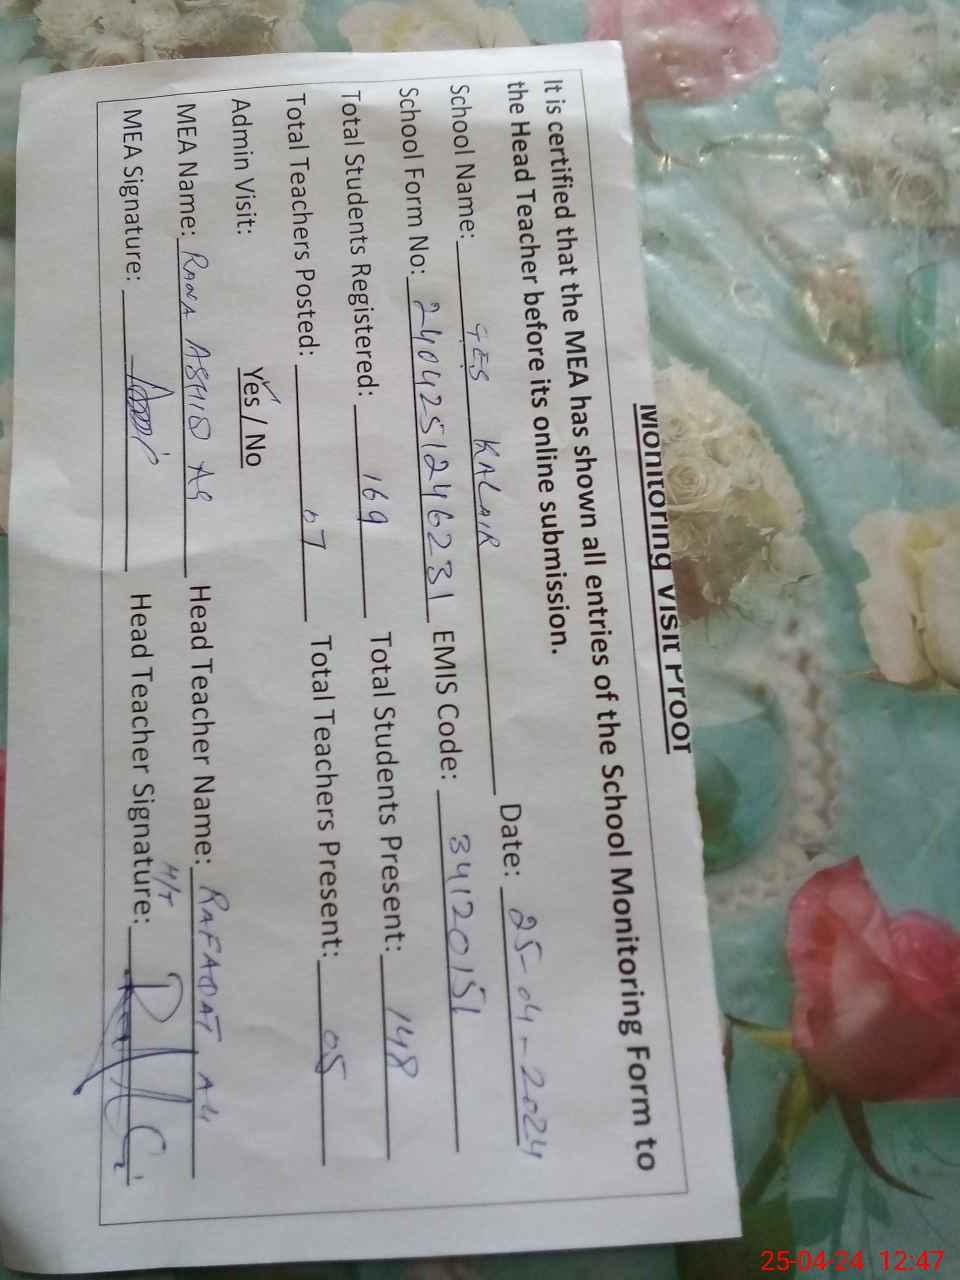 Monitoring Visit Proof
It is certified that the MEA has shown all entries of the School Monitoring Form to
the Head Teacher before its online submission.
School Name: GES KALAIR Date: 25-04-2024
School Form No: 24042512462 31 EMIS Code: 34120151
Total Students Registered: 169 Total Students Present: 148
Total Teachers Posted: 07 Total Teachers Present: 05
Admin Visit: Yes / No
MEA Name: RANA Head Teacher Name: RAFAQAT ALI
H/T
MEA Signature: Head Teacher Signature:
25-04-24 12:47